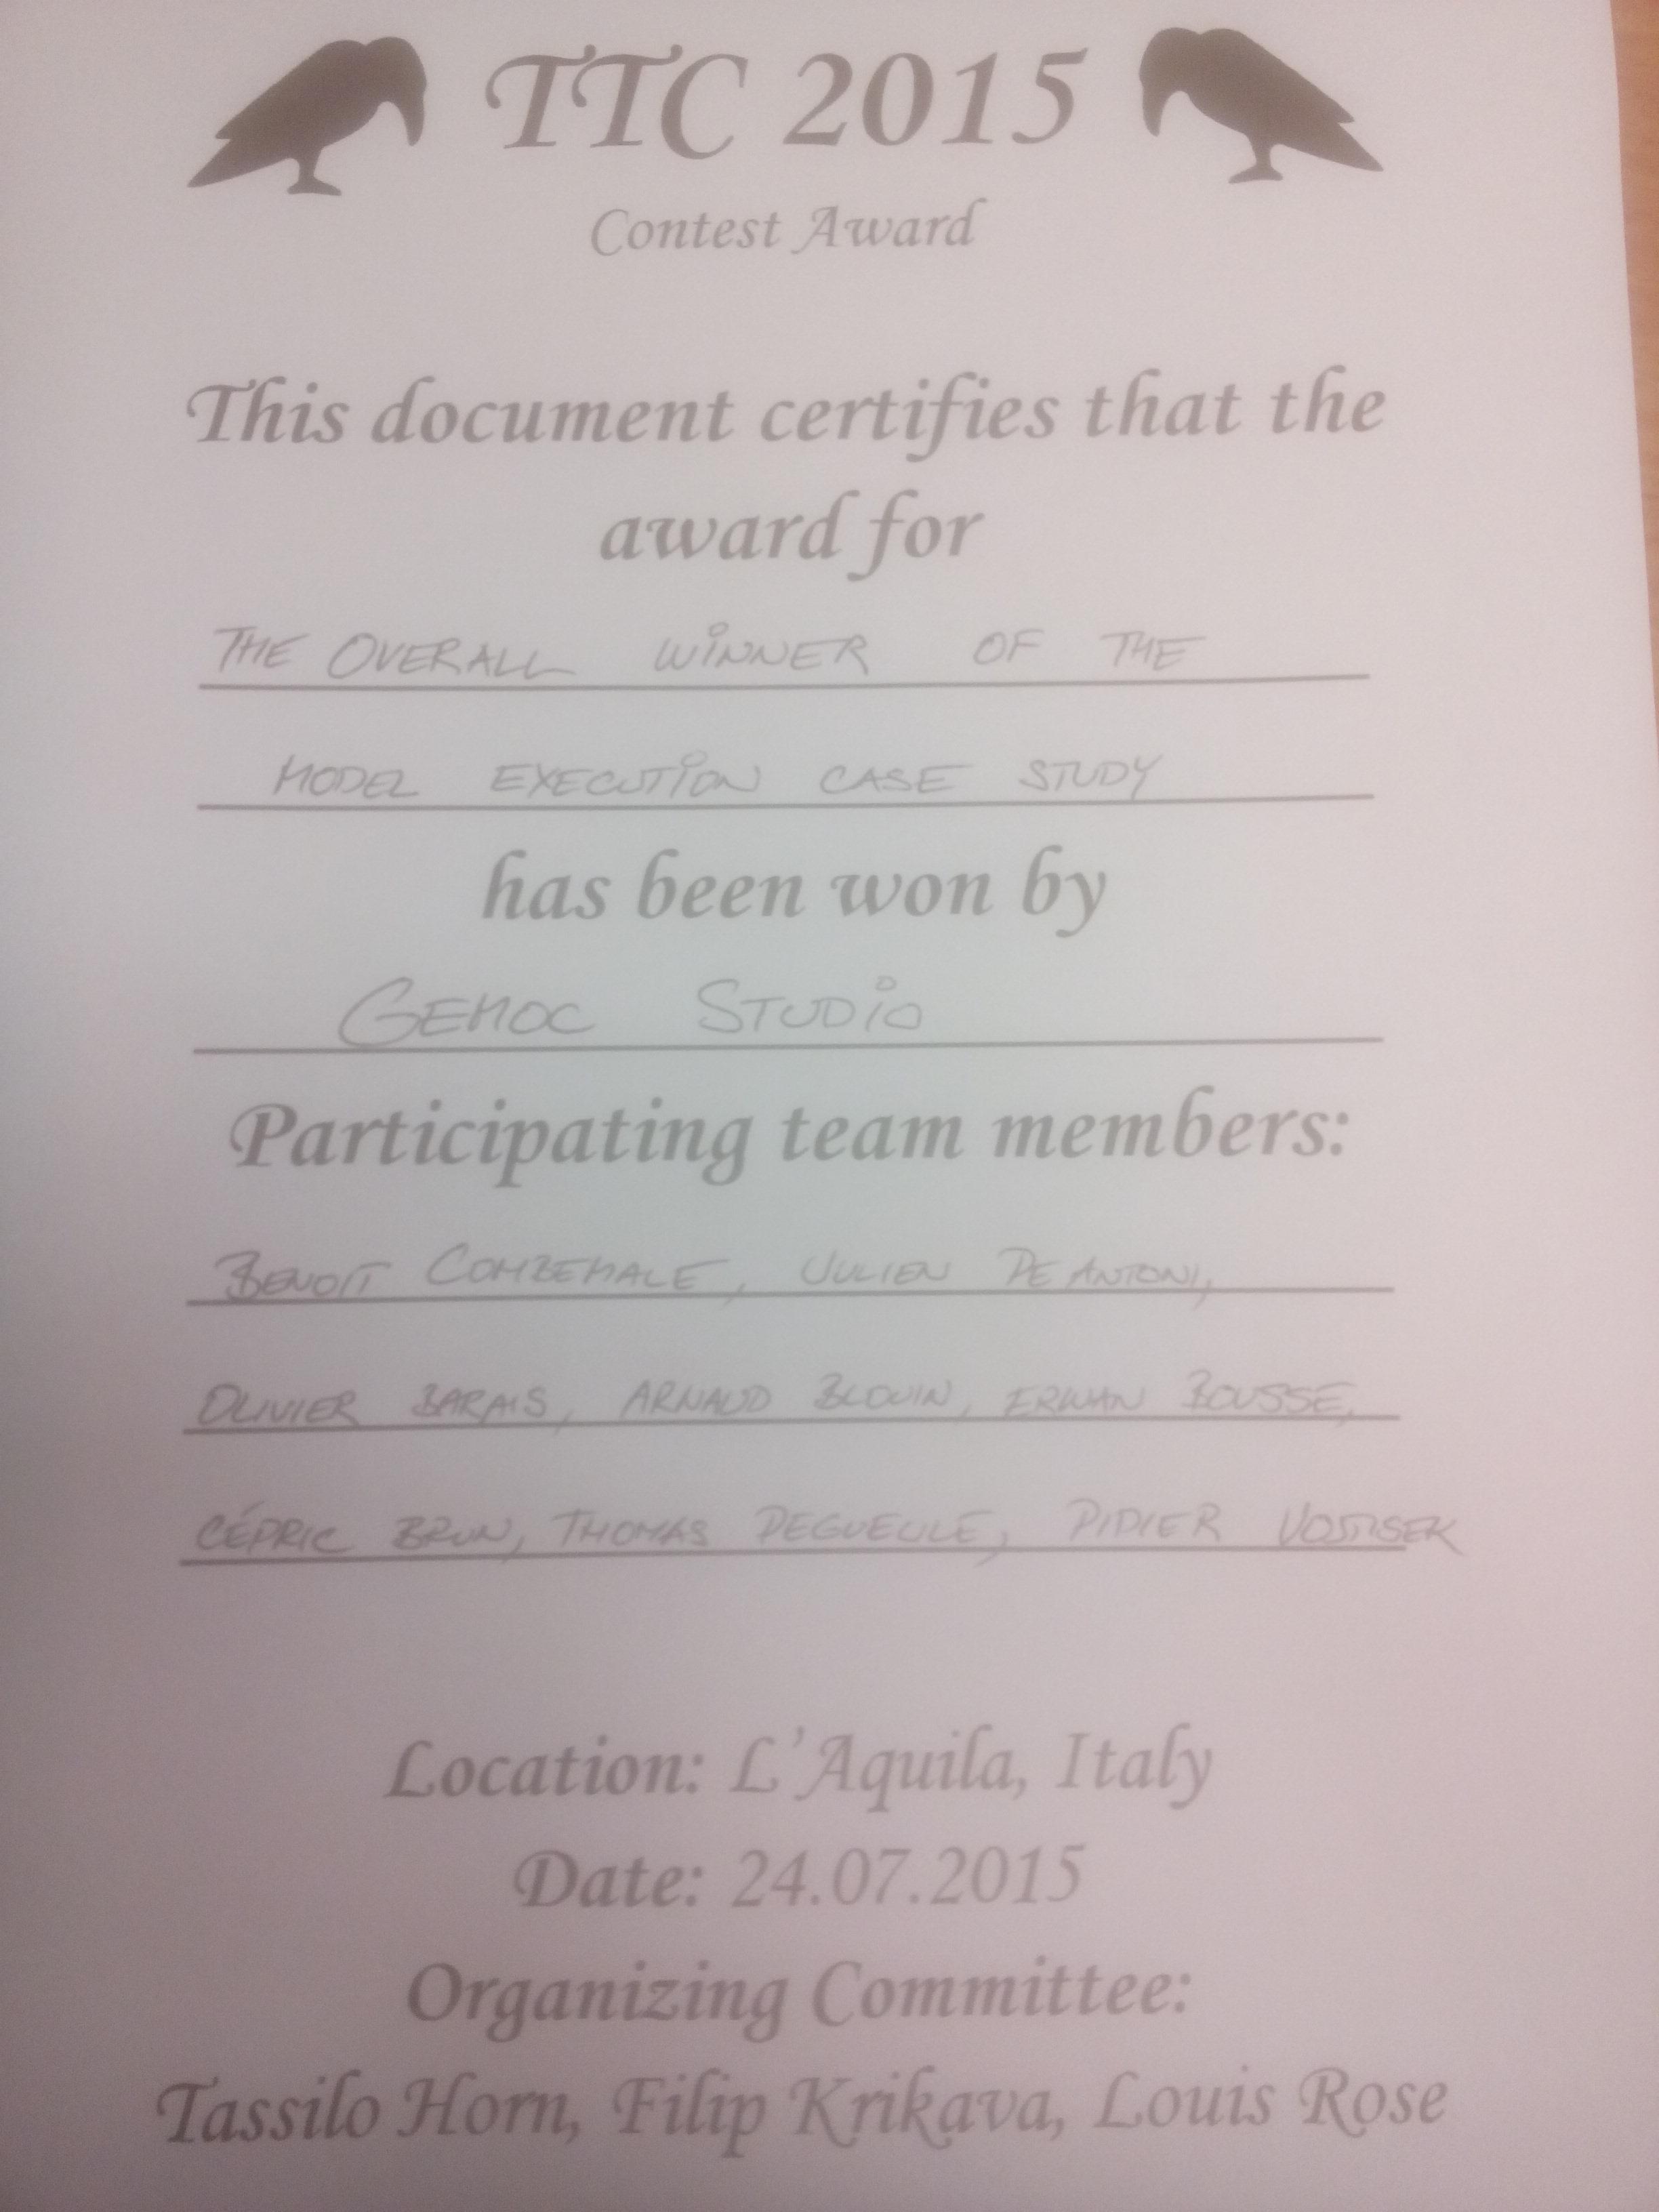 TTC 2015
Contest Award
This document certifies that the
award for
THE OVERALL WINNER OF THE
MODEL EXECUTION CASE STUDY
has been won by
GEMOC STUDIO
Participating team members:
BENOIT COMBEMALE, JULIEN DE ANTONI,
OLIVIER BARAIS, ARNAUD BLOUIN, ERWAN BOUSSE,
CÉDRIC BRUN, THOMAS DEGUEULE, DIDIER VOJTISEK
Location: L'Aquila, Italy
Date: 24.07.2015
Organizing Committee:
Tassilo Horn, Filip Krikava, Louis Rose